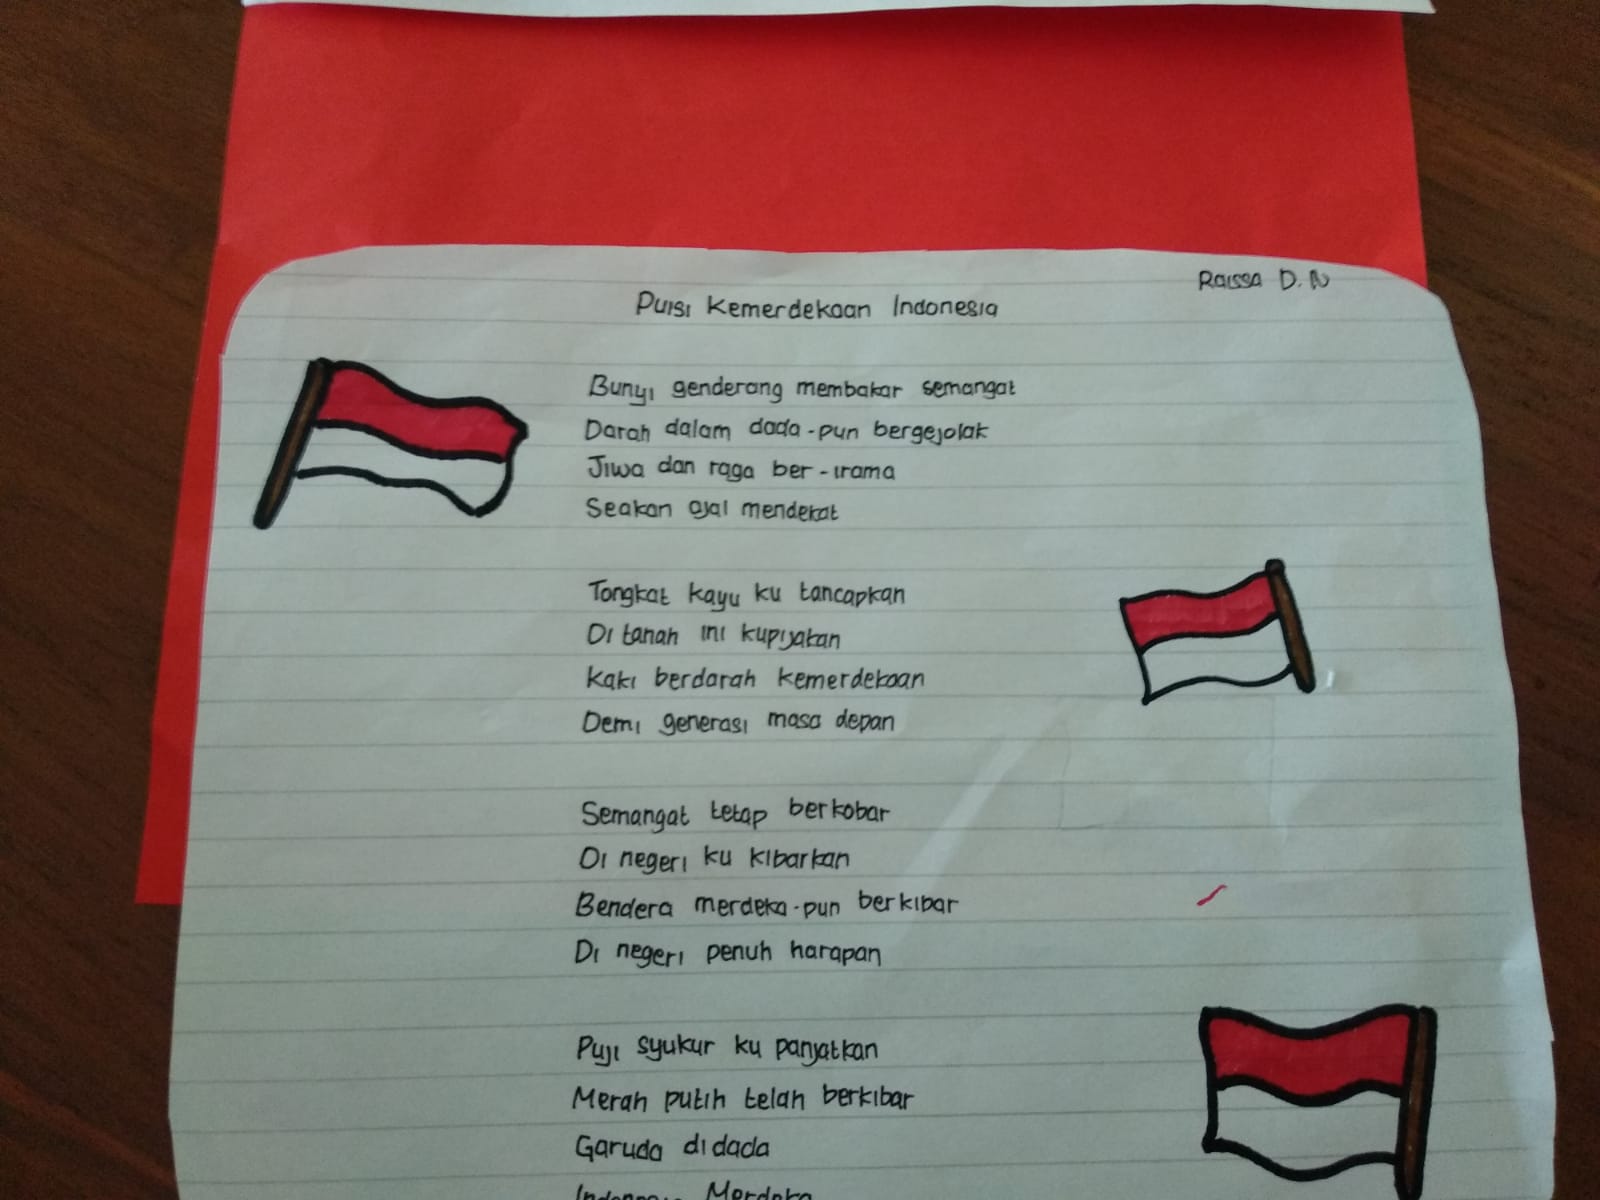 Raissa D.N
Puisi Kemerdekaan Indonesia
Bunyi genderang membakar semangat
Darah dalam dada-pun bergejolak
Jiwa dan raga ber-irama
Seakan ajal mendekat
Tongkat kayu ku tancapkan
Di tanah ini kupijakan
Kaki berdarah kemerdekaan
Demi generasi masa depan
Semangat tetap berkobar
Di negeri ku kibarkan
Bendera merdeka-pun berkibar
Di negeri penuh harapan
Puji syukur ku panjatkan
Merah putih telah berkibar
Garuda didada
Indonesia Merdeka